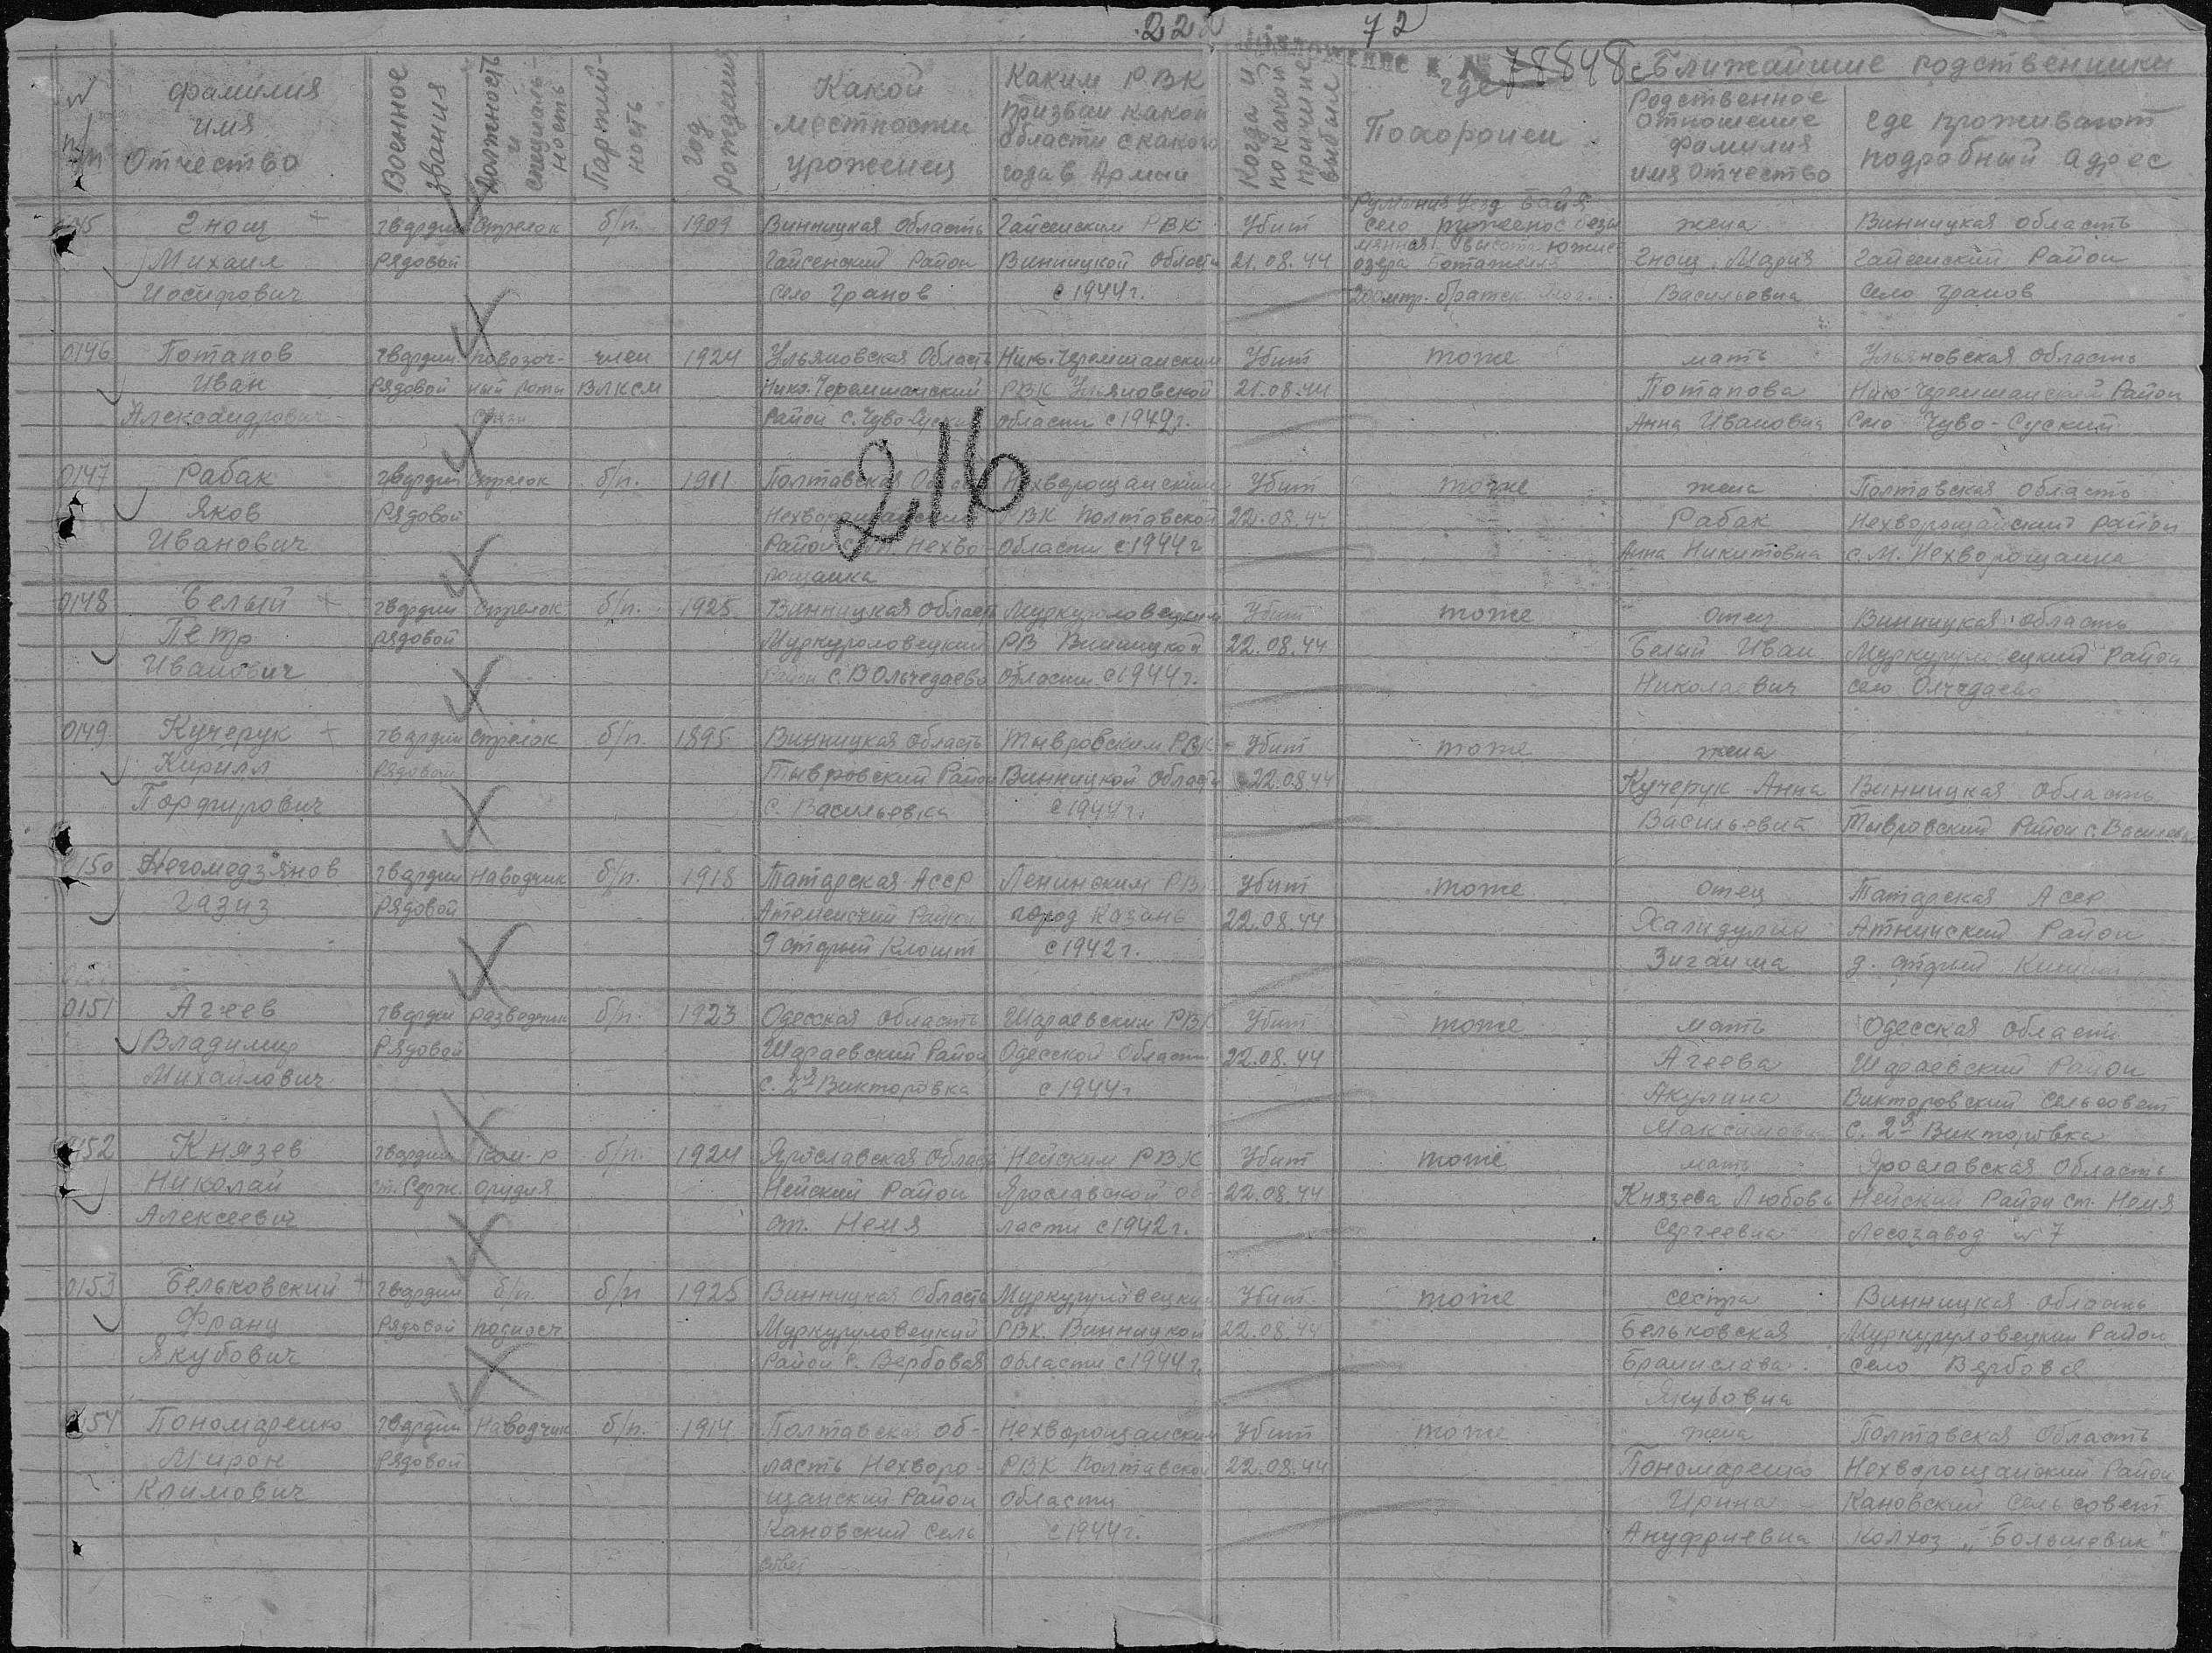 222 72
Приложение к № 78848с
№ п/п
Фамилия имя Отчество
Военное звания
Должность и специальность
Партийность
год рождения
Какой местности уроженец
Каким РВК призван какой области с какого года в Армии
Когда и по какой причине выбыл
где Похоронен
Ближайшие родственники
Родственное отношение фамилия имя Отчество
где проживают подробный адрес
216
145 Гнощ гвардии Стрелок б/п. 1909 Винницкая область Гайсенским РВК Убит Румыния Уезд село жена Винницкая область
Михаил Рядовой Гайсенский Район Винницкой области 21.08.44 высота южнее озера Гнощ Мария Гайсенский Район
Иосифович село Гранов с 1944 г. 200 мтр. братск. Васильевна село Гранов
0146 Потапов гвардии повозоч- член 1924 Ульяновская Область Нико.Черемшанским Убит тоже мать Ульяновская область
Иван Рядовой ный роты ВЛКСМ Нико.Черемшанский РВК Ульяновской 21.08.44 Потапова Нико-Черемшанский Район
Александрович связи Район с. Чуво-Суский области с 1942 г. Анна Ивановна Село Чуво-Суский
0147 Рабак гвардии Стрелок б/п. 1911 Полтавская Нехворощанским Убит тоже жена Полтавская область
Яков Рядовой Нехворощанский РВК Полтавской 22.08.44 Рабак Нехворощанский район
Иванович Район с.м. Нехво- области с 1944 г Анна Никитовна с.м. Нехворощанка
рощанка
0148 Белый гвардии Стрелок б/п. 1925 Винницкая область Муркуриловецким Убит тоже отец Винницкая область
Петр рядовой Муркуриловецкий РВ Винницкой 22.08.44 Белый Иван Муркуриловецкий Район
Иванович Район с. Вольчедаево области с 1944 г. Николаевич село Олчедаево
0149 Кучерук гвардии Стрелок б/п. 1895 Винницкая область Тывровским РВК Убит тоже жена
Кирилл рядовой Тывровский Район Винницкой области 22.08.44 Кучерук Анна Винницкая область
Порфирович с. Васильевка с 1944 г. Васильевна Тывровский Район с. Васильевка
150 Негомедзянов гвардии Наводчик б/п. 1918 Татарская Асср Ленинским РВК Убит тоже отец Татарская Асср
Газиз Рядовой Район город Казань 22.08.44 Халидулин Атнинский Район
старый с 1942 г. Зиганша д. старый
0151 Агеев гвардии разведчик б/п. 1923 Одесская область Шараевским РВК Убит тоже мать Одесская область
Владимир Рядовой Шараевский Район Одесской области 22.08.44 Агеева Шараевский Район
Михайлович с. 2я Викторовка с 1944 г Акулина Викторовский сельсовет
Максимовна с. 2я Викторовка
0152 Князев гвардии Ком-р б/п. 1924 Ярославская область Нейским РВК Убит тоже мать Ярославская область
Николай ст. Серж. орудия Нейский Район Ярославской об- 22.08.44 Князева Любовь Нейский Район ст. Немя
Алексеевич ст. Немя ласти с 1942 г. Сергеевна Лесозавод № 7
0153 Бельковский гвардии б/п. б/п 1925 Винницкая область Муркуриловецким Убит тоже сестра Винницкая область
Франц Рядовой подносч. Муркуриловецкий РВК Винницкой 22.08.44 Бельковская Муркуриловецкий Район
Якубович Район с. Вербовая области с 1944 г. Бранислава село Вербовая
Якубовна
0154 Пономаренко гвардии Наводчик б/п. 1914 Полтавская об- Нехворощанским Убит тоже жена Полтавская область
Мирон Рядовой ласть Нехворо- РВК Полтавской 22.08.44 Пономаренко Нехворощанский Район
Климович щанский Район области Ирина Кановский сельсовет
Кановский Сель с 1944 г. Ануфриевна колхоз „Большевик"
совет